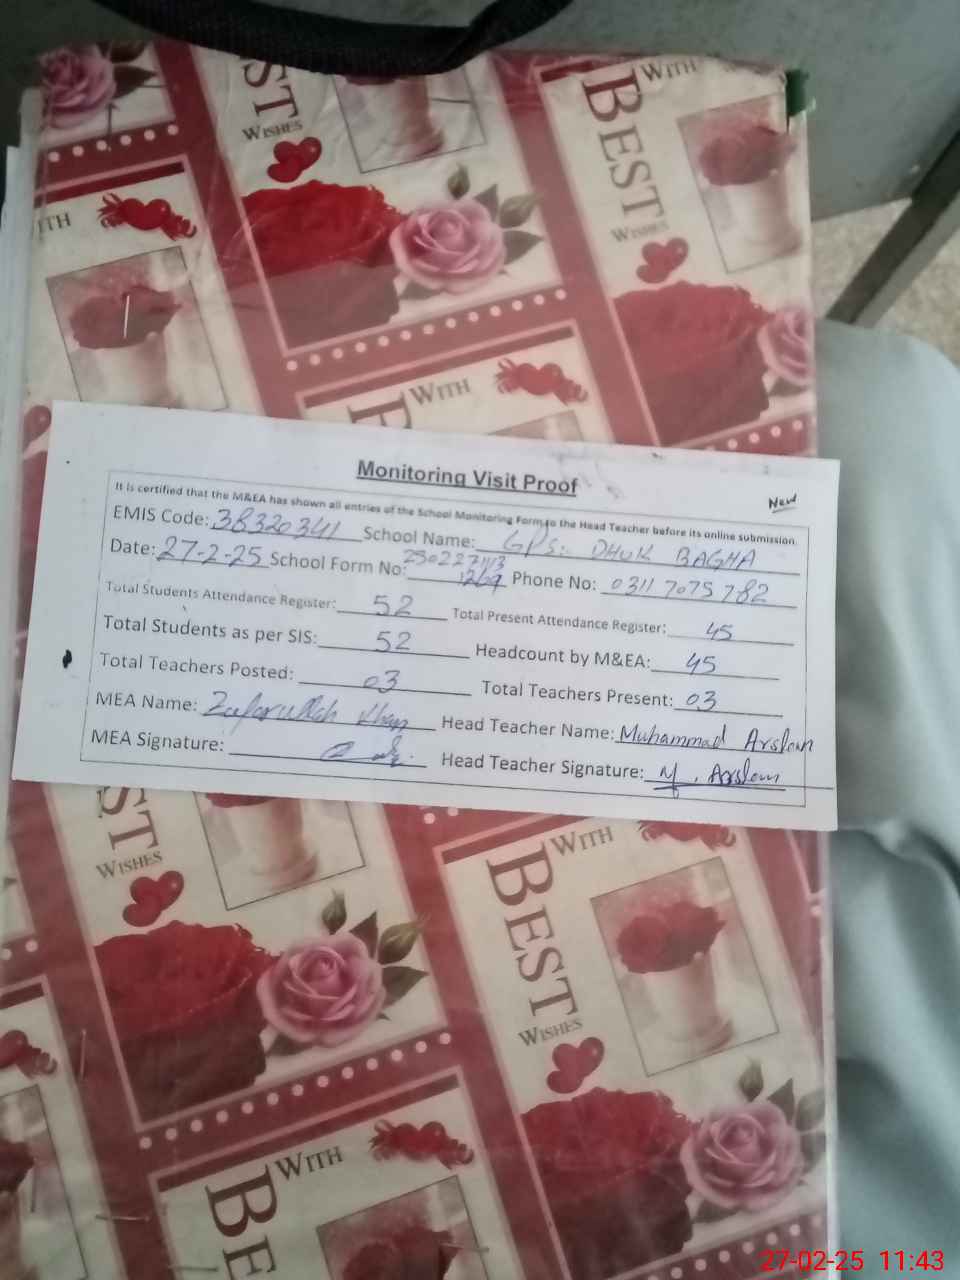 ST
WISHES
WITH
BEST
WISHES
ITH
WITH
B
Monitoring Visit Proof
New
It is certified that the M&EA has shown all entries of the School Monitoring Form to the Head Teacher before its online submission.
EMIS Code: 38320341 School Name: GPS: DHUK BAGHA
Date: 27-2-25 School Form No: Phone No: 0311 7075782
Total Students Attendance Register: 52 Total Present Attendance Register: 45
Total Students as per SIS: 52 Headcount by M&EA: 45
Total Teachers Posted: 03 Total Teachers Present: 03
MEA Name: Zafarullah Khan Head Teacher Name: Muhammad Arslan
MEA Signature: Head Teacher Signature: M. Arslan
ST
WISHES
WITH
BEST
WISHES
WITH
BE
27-02-25 11:43